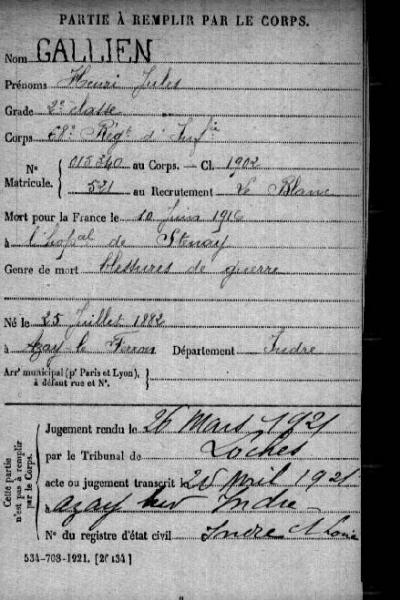 PARTIE À REMPLIR PAR LE CORPS.
Nom GALLIEN
Prénoms Henri Jules
Grade 2e classe
Corps 68e Régt d'Infie
Nº Matricule. { 015340 au Corps. — Cl. 1902
521 au Recrutement Le Blanc
Mort pour la France le 10 Juin 1916
à l'hopal de Stenay
Genre de mort blessures de guerre
Né le 25 Juillet 1882
à Azay le Ferron Département Indre
Arrt municipal (pr Paris et Lyon), à défaut rue et Nº. }
Cette partie n'est pas à remplir par le Corps.
Jugement rendu le 26 Mars 1921
par le Tribunal de Loches
acte ou jugement transcrit le 25 Avril 1921
à Azay sur Indre
Nº du registre d'état civil Indre & Loire
534-708-1921. [26434]